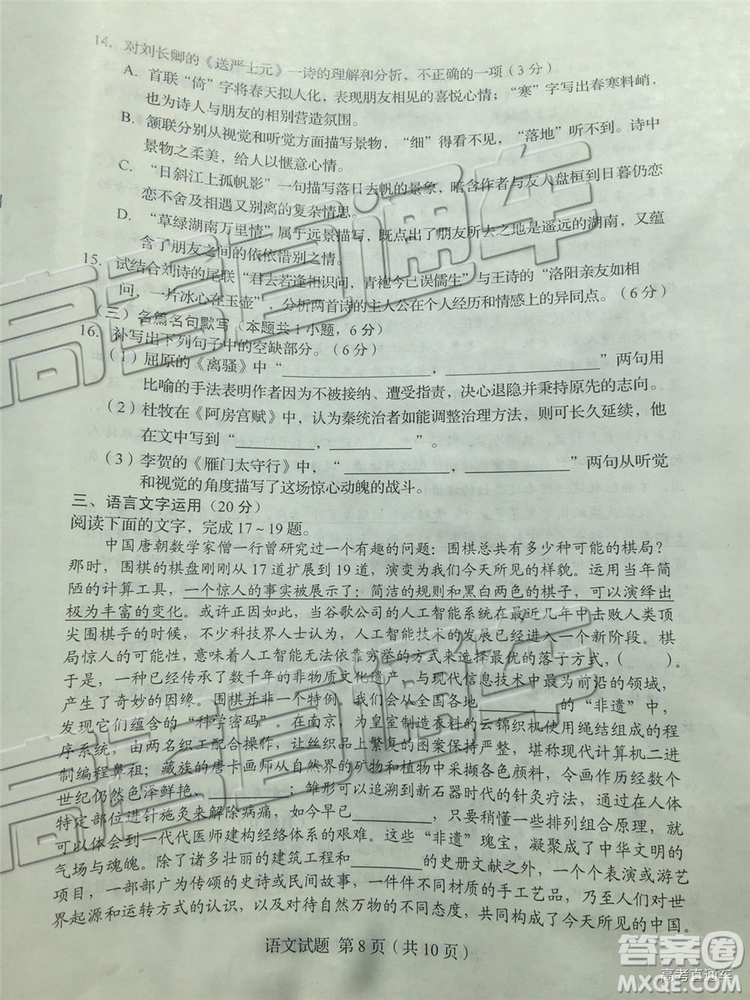 14. 对刘长卿的《送严士元》一诗的理解和分析，不正确的一项(3 分)
A. 首联“倚”字将春天拟人化，表现朋友相见的喜悦心情；“寒”字写出春寒料峭，
也为诗人与朋友的相别营造氛围。
B. 颔联分别从视觉和听觉方面描写景物，“细”得看不见，“落地”听不到。诗中
景物之柔美，给人以惬意心情。
C. “日斜江上孤帆影”一句描写落日去帆的景象，暗含作者与友人盘桓到日暮仍恋
恋不舍及相遇又别离的复杂情思。
D. “草绿湖南万里情”属于远景描写，既点出了朋友所去之地是遥远的湖南，又蕴
含了朋友之间的依依惜别之情。
15. 试结合刘诗的尾联“君去若逢相识问，青袍今已误儒生”与王诗的“洛阳亲友如相
问，一片冰心在玉壶”，分析两首诗的主人公在个人经历和情感上的异同点。（6 分）
（三）名篇名句默写（本题共 1 小题，6 分）
16. 补写出下列句子中的空缺部分。（6 分）
（1）屈原的《离骚》中，“____________，____________”两句用
比喻的手法表明作者因为不被接纳、遭受指责，决心退隐并秉持原先的志向。
（2）杜牧在《阿房宫赋》中，认为秦统治者如能调整治理方法，则可长久延续，他
在文中写到“____________，____________”
（3）李贺的《雁门太守行》中，“____________，____________”两句从听觉
和视觉的角度描写了这场惊心动魄的战斗。
三、语言文字运用（20 分）
阅读下面的文字，完成 17～19 题。
中国唐朝数学家僧一行曾研究过一个有趣的问题：围棋总共有多少种可能的棋局？
那时，围棋的棋盘刚刚从 17 道扩展到 19 道，演变为我们今天所见的样貌。运用当年简
陋的计算工具，一个惊人的事实被展示了：简洁的规则和黑白两色的棋子，可以演绎出
极为丰富的变化。或许正因如此，当谷歌公司的人工智能系统在最近几年中击败人类顶
尖围棋手的时候，不少科技界人士认为，人工智能技术的发展已经进入一个新阶段。棋
局惊人的可能性，意味着人工智能无法依靠穷举的方式来选择最优的落子方式，（ ）。
于是，一种已经传承了数千年的非物质文化遗产，与现代信息技术中最为前沿的领域，
产生了奇妙的因缘。围棋并非一个特例，我们可以从全国各地________的“非遗”中，
发现它们蕴含的“科学密码”：在南京，为皇室制造衣料的云锦织机使用绳结组成的程
序系统，由两名织工配合操作，让丝织品上繁复的图案保持严整，堪称现代计算机二进
制编程鼻祖；藏族的唐卡画师从自然界的矿物和植物中采撷各色颜料，令画作历经数个
世纪仍然色泽鲜艳、________；雏形可以追溯到新石器时代的针灸疗法，通过在人体
特定部位进行针施灸来解除病痛，如今早已________，只要稍懂一些排列组合原理，就
可以体会到一代代医师建构经络体系的艰难。这些“非遗”瑰宝，凝聚成了中华文明的
气场与魂魄。除了诸多壮丽的建筑工程和________的史册文献之外，一个个表演或游艺
项目，一部部广为传颂的史诗或民间故事，一件件不同材质的手工艺品，乃至人们对世
界起源和运转方式的认识，以及对待自然万物的不同态度，共同成就了今天所见的中国。
语文试题 第 8 页（共 10 页）
高考直通车
答案圈
MXQE.COM
高考直通车